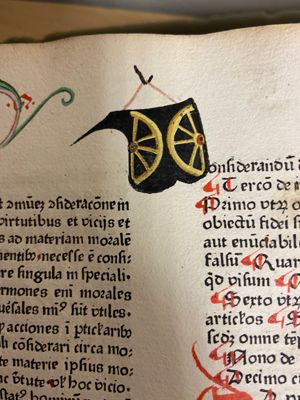 t ↄmunē ↄſideracōne in
virtutibus et vicijs et
as ad materiam moralē
nentibꝰ neceſſe ē conſi⸗
re ſingula in ſpeciali.
rmones eni morales
ueſales miꝰ ſūt vtiles.
acciones ī pticłaribꝰ
li cōſiderari circa mo⸗
te materie ipſius mo⸗
ac vtute vł hoc vicio.
onſiderandū ē
Terco de
Primo vtꝝ
obiectū fidei
aut enūciabili
falſū Quar
qd viſum
Sexto vtꝝ
artickłos
ſcꝫ omne tep
Nono de
Decimo ci